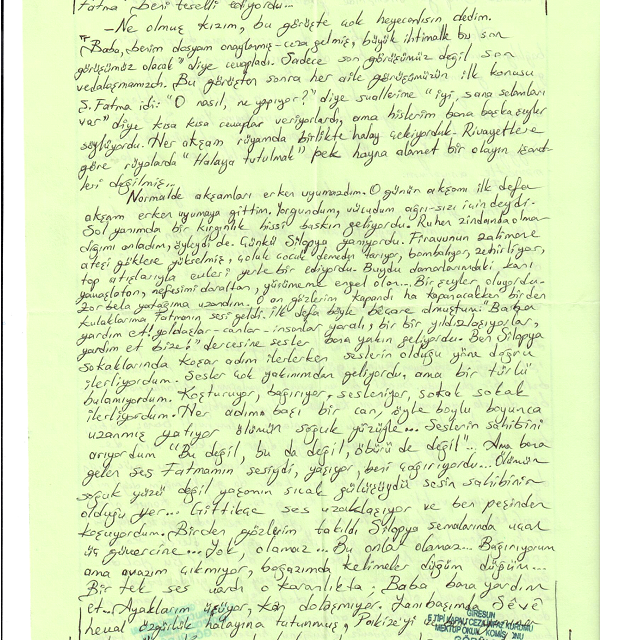 Fatma beni teselli ediyordu...
-Ne olmuş kızım, bu görüşte çok heyecanlısın dedim.
"Baba, benim dosyam onaylanmış-ceza gelmiş, büyük ihtimalle bu son
görüşümüz olacak" diye cevapladı. Sadece son görüşümüz değil son
vedalaşmamızdı. Bu görüşten sonra her aile görüşümüzün ilk konusu
Ş. Fatma idi: "O nasıl, ne yapıyor?" diye suallerime "iyi, sana selamları
var" diye kısa kısa cevaplar veriyorlardı, ama hislerim bana başka şeyler
söylüyordu. Her akşam rüyamda birlikte halay çekiyorduk. Rivayetlere
göre rüyalarda "Halaya tutulmak" pek hayra alamet bir olayın işaret-
leri değilmiş...
Normalde akşamları erken uyumazdım. O günün akşamı ilk defa
akşam erken uyumaya gittim. Yorgundum, vücudum ağrı-sızı içindeydi.
Sol yanımda bir kırgınlık hissi baskın geliyordu. Ruhen zindanda olma-
dığımı anladım, öyleydi de. Çünkü Silopya yanıyordu. Firavunun zalimane
ateşi göklere yükselmiş, çoluk çocuk demeden tarıyor, bombalıyor, zehirliyor,
top atışlarıyla evleri yerle bir ediyordu. Buydu damarlarımdaki kanı
yavaşlatan, nefesimi daraltan, yürümeme engel olan... Bir şeyler oluyordu.
Zor bela yatağıma uzandım. O an gözlerim kapandı ha kapanacakken birden
kulaklarıma Fatmanın sesi geldi. İlk defa böyle biçare olmuştum! Baba
yardım et! yoldaşlar-canlar-insanlar yaralı, bir bir yıldızlaşıyorlar,
yardım et bize!" dercesine sesler bana yakın geliyordu. Ben Silopya
sokaklarında koşar adım ilerlerken seslerin olduğu yöne doğru
ilerliyordum. Sesler çok yakınımdan geliyordu, ama bir türlü
bulamıyordum. Koşturuyor, bağırıyor, sesleniyor, sokak sokak
ilerliyordum. Her adım başı bir can, öyle boylu boyunca
uzanmış yatıyor ölümün soğuk yüzüyle... Seslerin sahibini
arıyordum "Bu değil, bu da değil, öbürü de değil"... Ama bana
gelen ses Fatmamın sesiydi, yaşıyor, beni çağırıyordu... Ölümün
soğuk yüzü değil yaşamın sıcak gülüşüydü sesin sahibinin
olduğu yer... Gittikçe ses uzaklaşıyor ve ben peşinden
koşuyordum. Birden gözlerim takıldı Silopya semalarında uçan
üç güvercine... Yok, olamaz... Bu onlar olamaz... Bağırıyorum
ama avazım çıkmıyor, boğazımda kelimeler düğüm düğüm...
Bir tek ses vardı o karanlıkta; Baba bana yardım
et... Ayaklarım üşüyor, kan dolaşmıyor. Yanıbaşımda Sêvê
heval özgürlük halayına tutunmuş, Pakize'yi
GİRESUN
E TİPİ KAPALI CEZA İNFAZ KURUMU
MEKTUP OKUMA KOMİSYONU